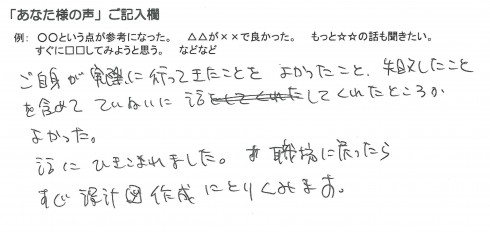 「あなた様の声」ご記入欄
例： 〇〇という点が参考になった。 △△が××で良かった。 もっと☆☆の話も聞きたい。
すぐに□□してみようと思う。 などなど
ご自身が実際に行って来たことを よかったこと、失敗したこと
を含めて ていねいに 話してくれたところが
よかった。
話に ひきこまれました。 職場に戻ったら
すぐ 設計図 作成 にとりくみます。